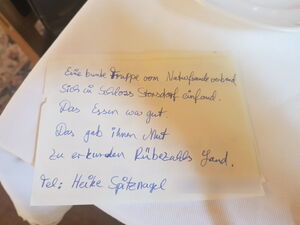 Eine bunte Truppe vom Naturfreundeverband
sich in Schloss Stonsdorf einfand.
Das Essen war gut
Das gab ihnen Mut
zu erkunden Rübezahls Land.
Tel: Heike Spitznagel